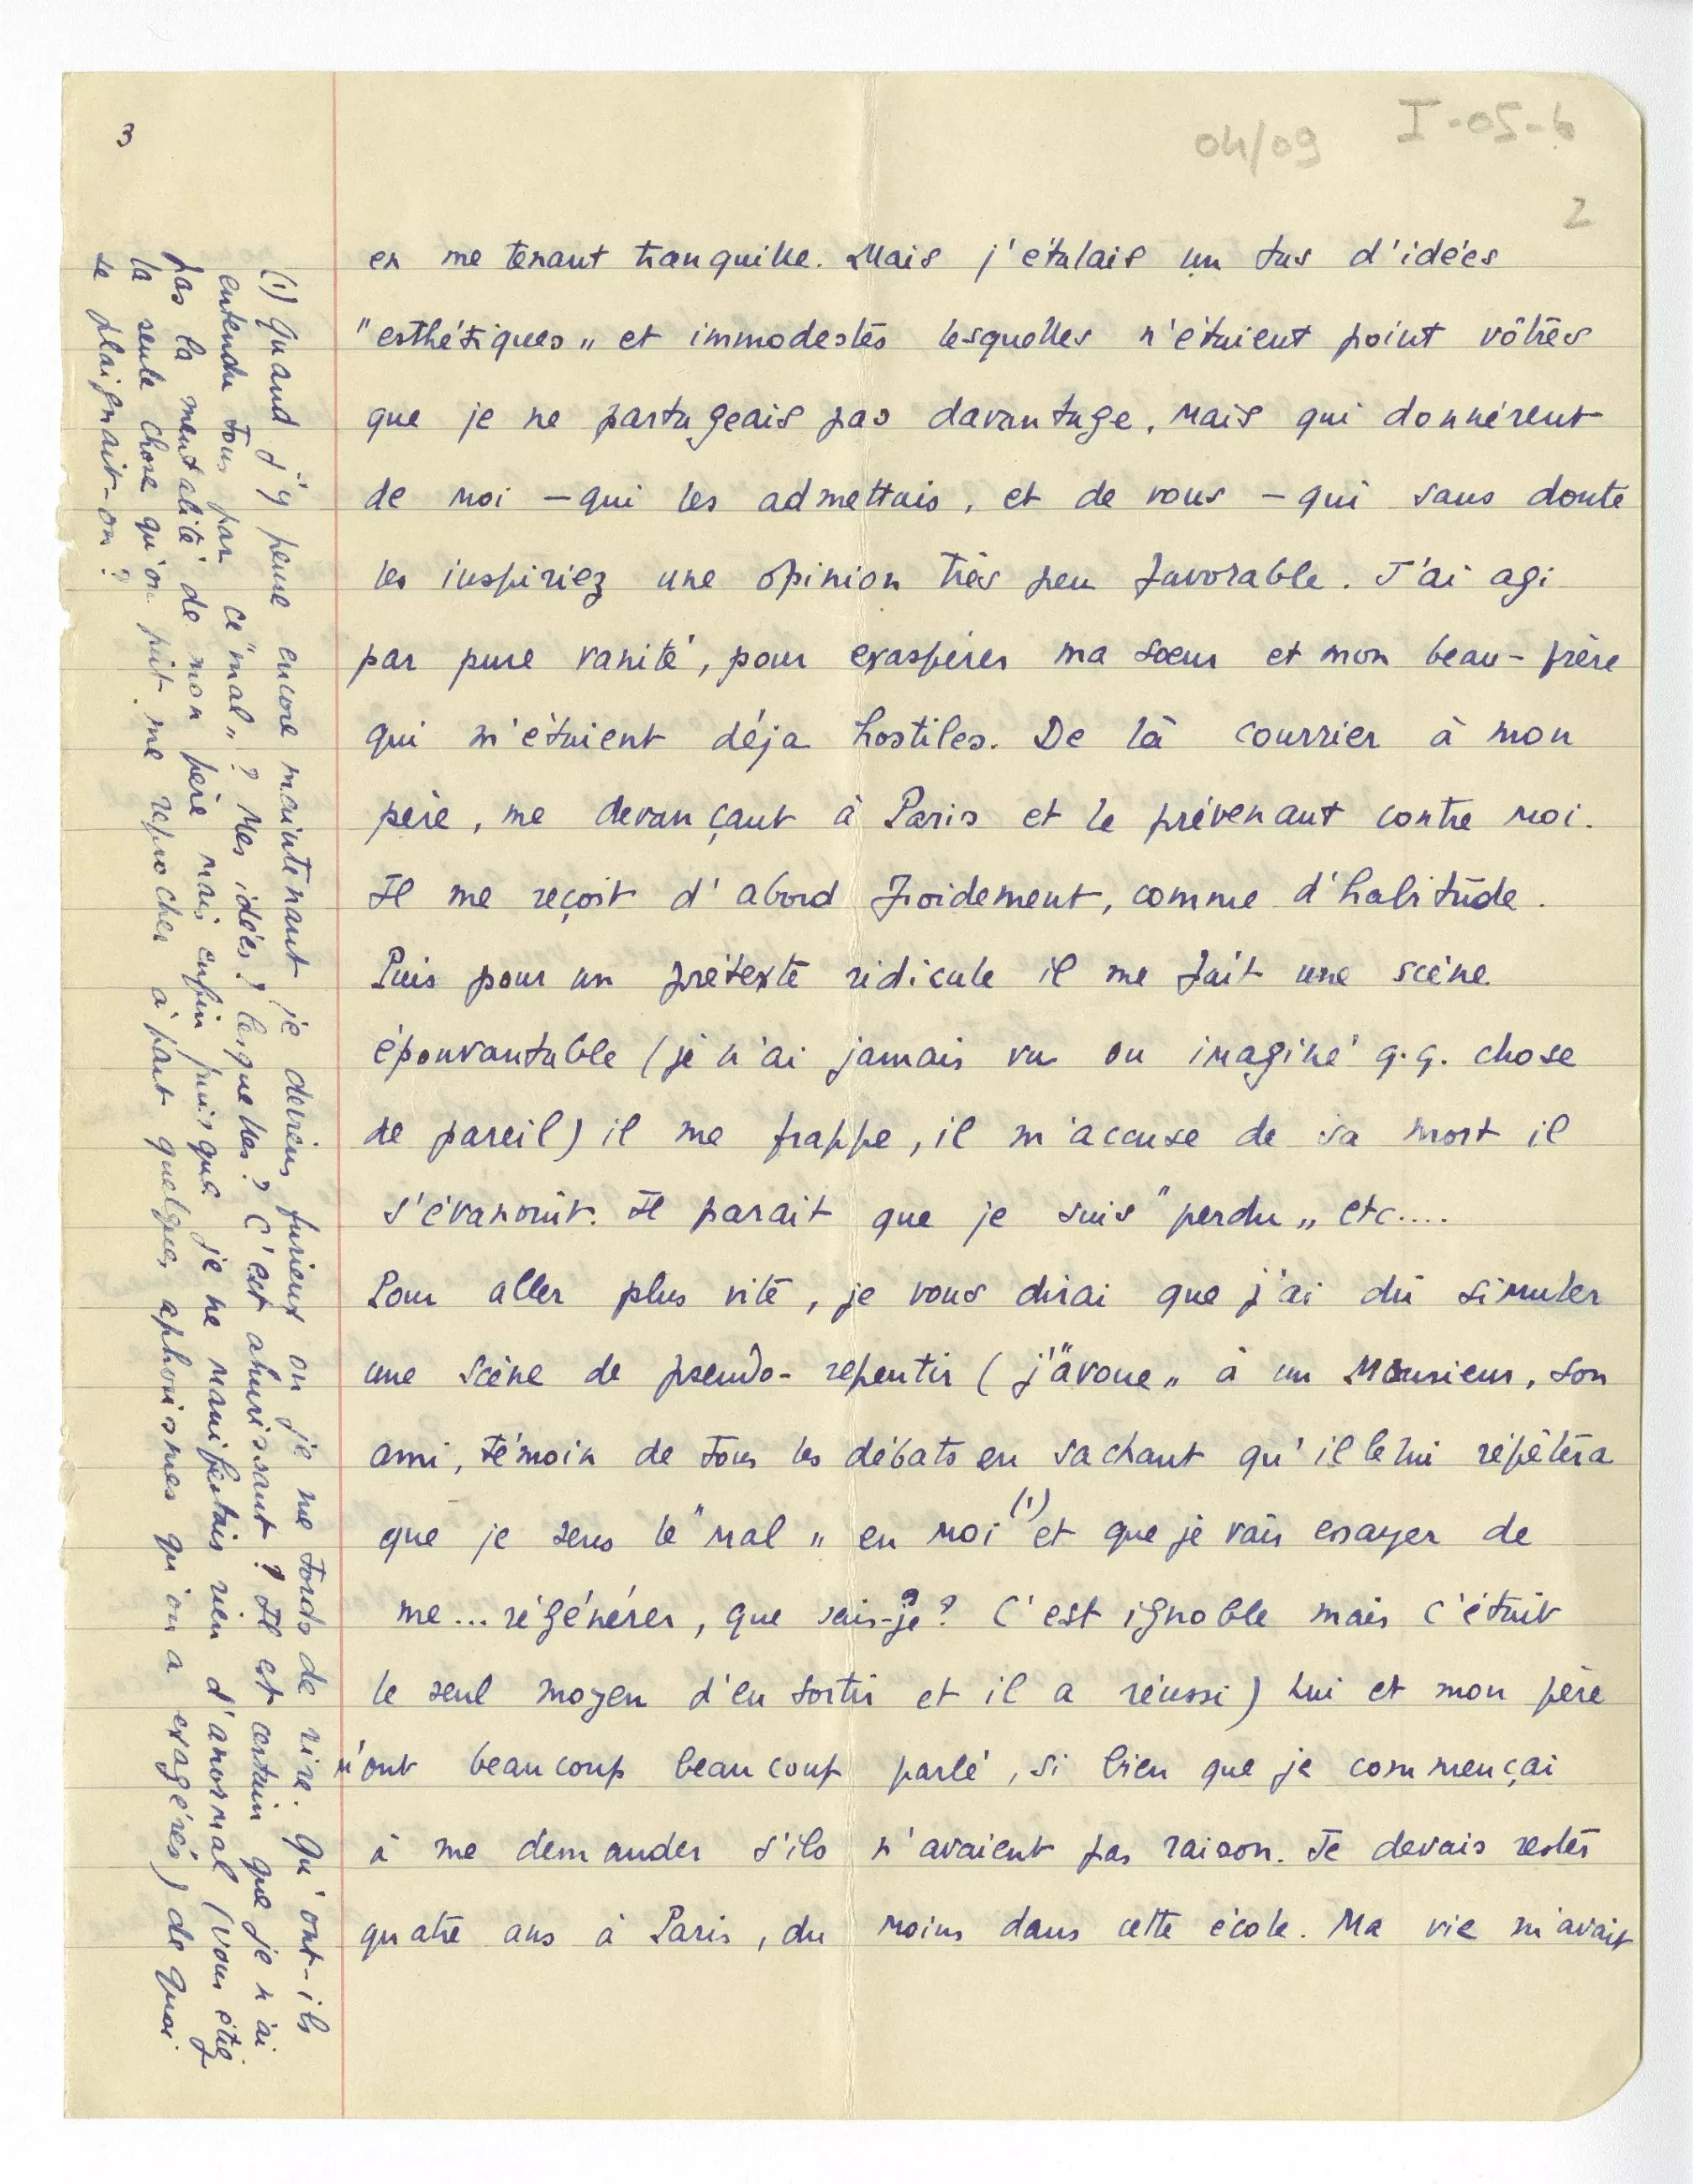 3
04/09
I-05-6
2
en me tenant tranquille. Mais j'étalais un tas d'idées
"esthétiques„ et immodestes lesquelles n'étaient point vôtres
que je ne partageais pas davantage, mais qui donnèrent
de moi – qui les admettais, et de vous – qui sans doute
les inspiriez une opinion très peu favorable. J'ai agi
par pure vanité, pour exaspérer ma sœur et mon beau-frère
qui m'étaient déja hostiles. De là courrier à mon
père, me devançant à Paris et le prévenant contre moi.
Il me reçoit d'abord froidement, comme d'habitude.
Puis pour un prétexte ridicule il me fait une scène
épouvantable (je n'ai jamais vu ou imaginé q.q. chose
de pareil) il me frappe, il m'accuse de sa mort il
s'évanouit. Il parait que je suis "perdu„ etc....
Pour aller plus vite, je vous dirai que j'ai dû simuler
une scène de pseudo-repentir (j'"avoue„ à un Monsieur, son
ami, témoin de tous les débats en sachant qu'il le lui répètera
que je sens le "mal„ en moi (1) et que je vais essayer de
me... régénérer, que sais-je? C'est ignoble mais c'était
le seul moyen d'en sortir et il a réussi) Lui et mon père
m'ont beaucoup beaucoup parlé, si bien que je commençai
à me demander s'ils n'avaient pas raison. Je devais rester
quatre ans à Paris, du moins dans cette école. Ma vie m'avait
(1) Quand j'y pense encore maintenant je deviens furieux ou je me tords de rire. Qu'ont-ils
entendu tous par ce "mal„? Mes idées? lesquelles? C'est ahurissant! Il est certain que je n'ai
pas la mentalité de mon père mais enfin puisque je ne manifestais rien d'anormal (vous étiez
la seule chose qu'on pût me reprocher à part quelques aphorismes qu'on a exagérés) de quoi
se plaignait-on?